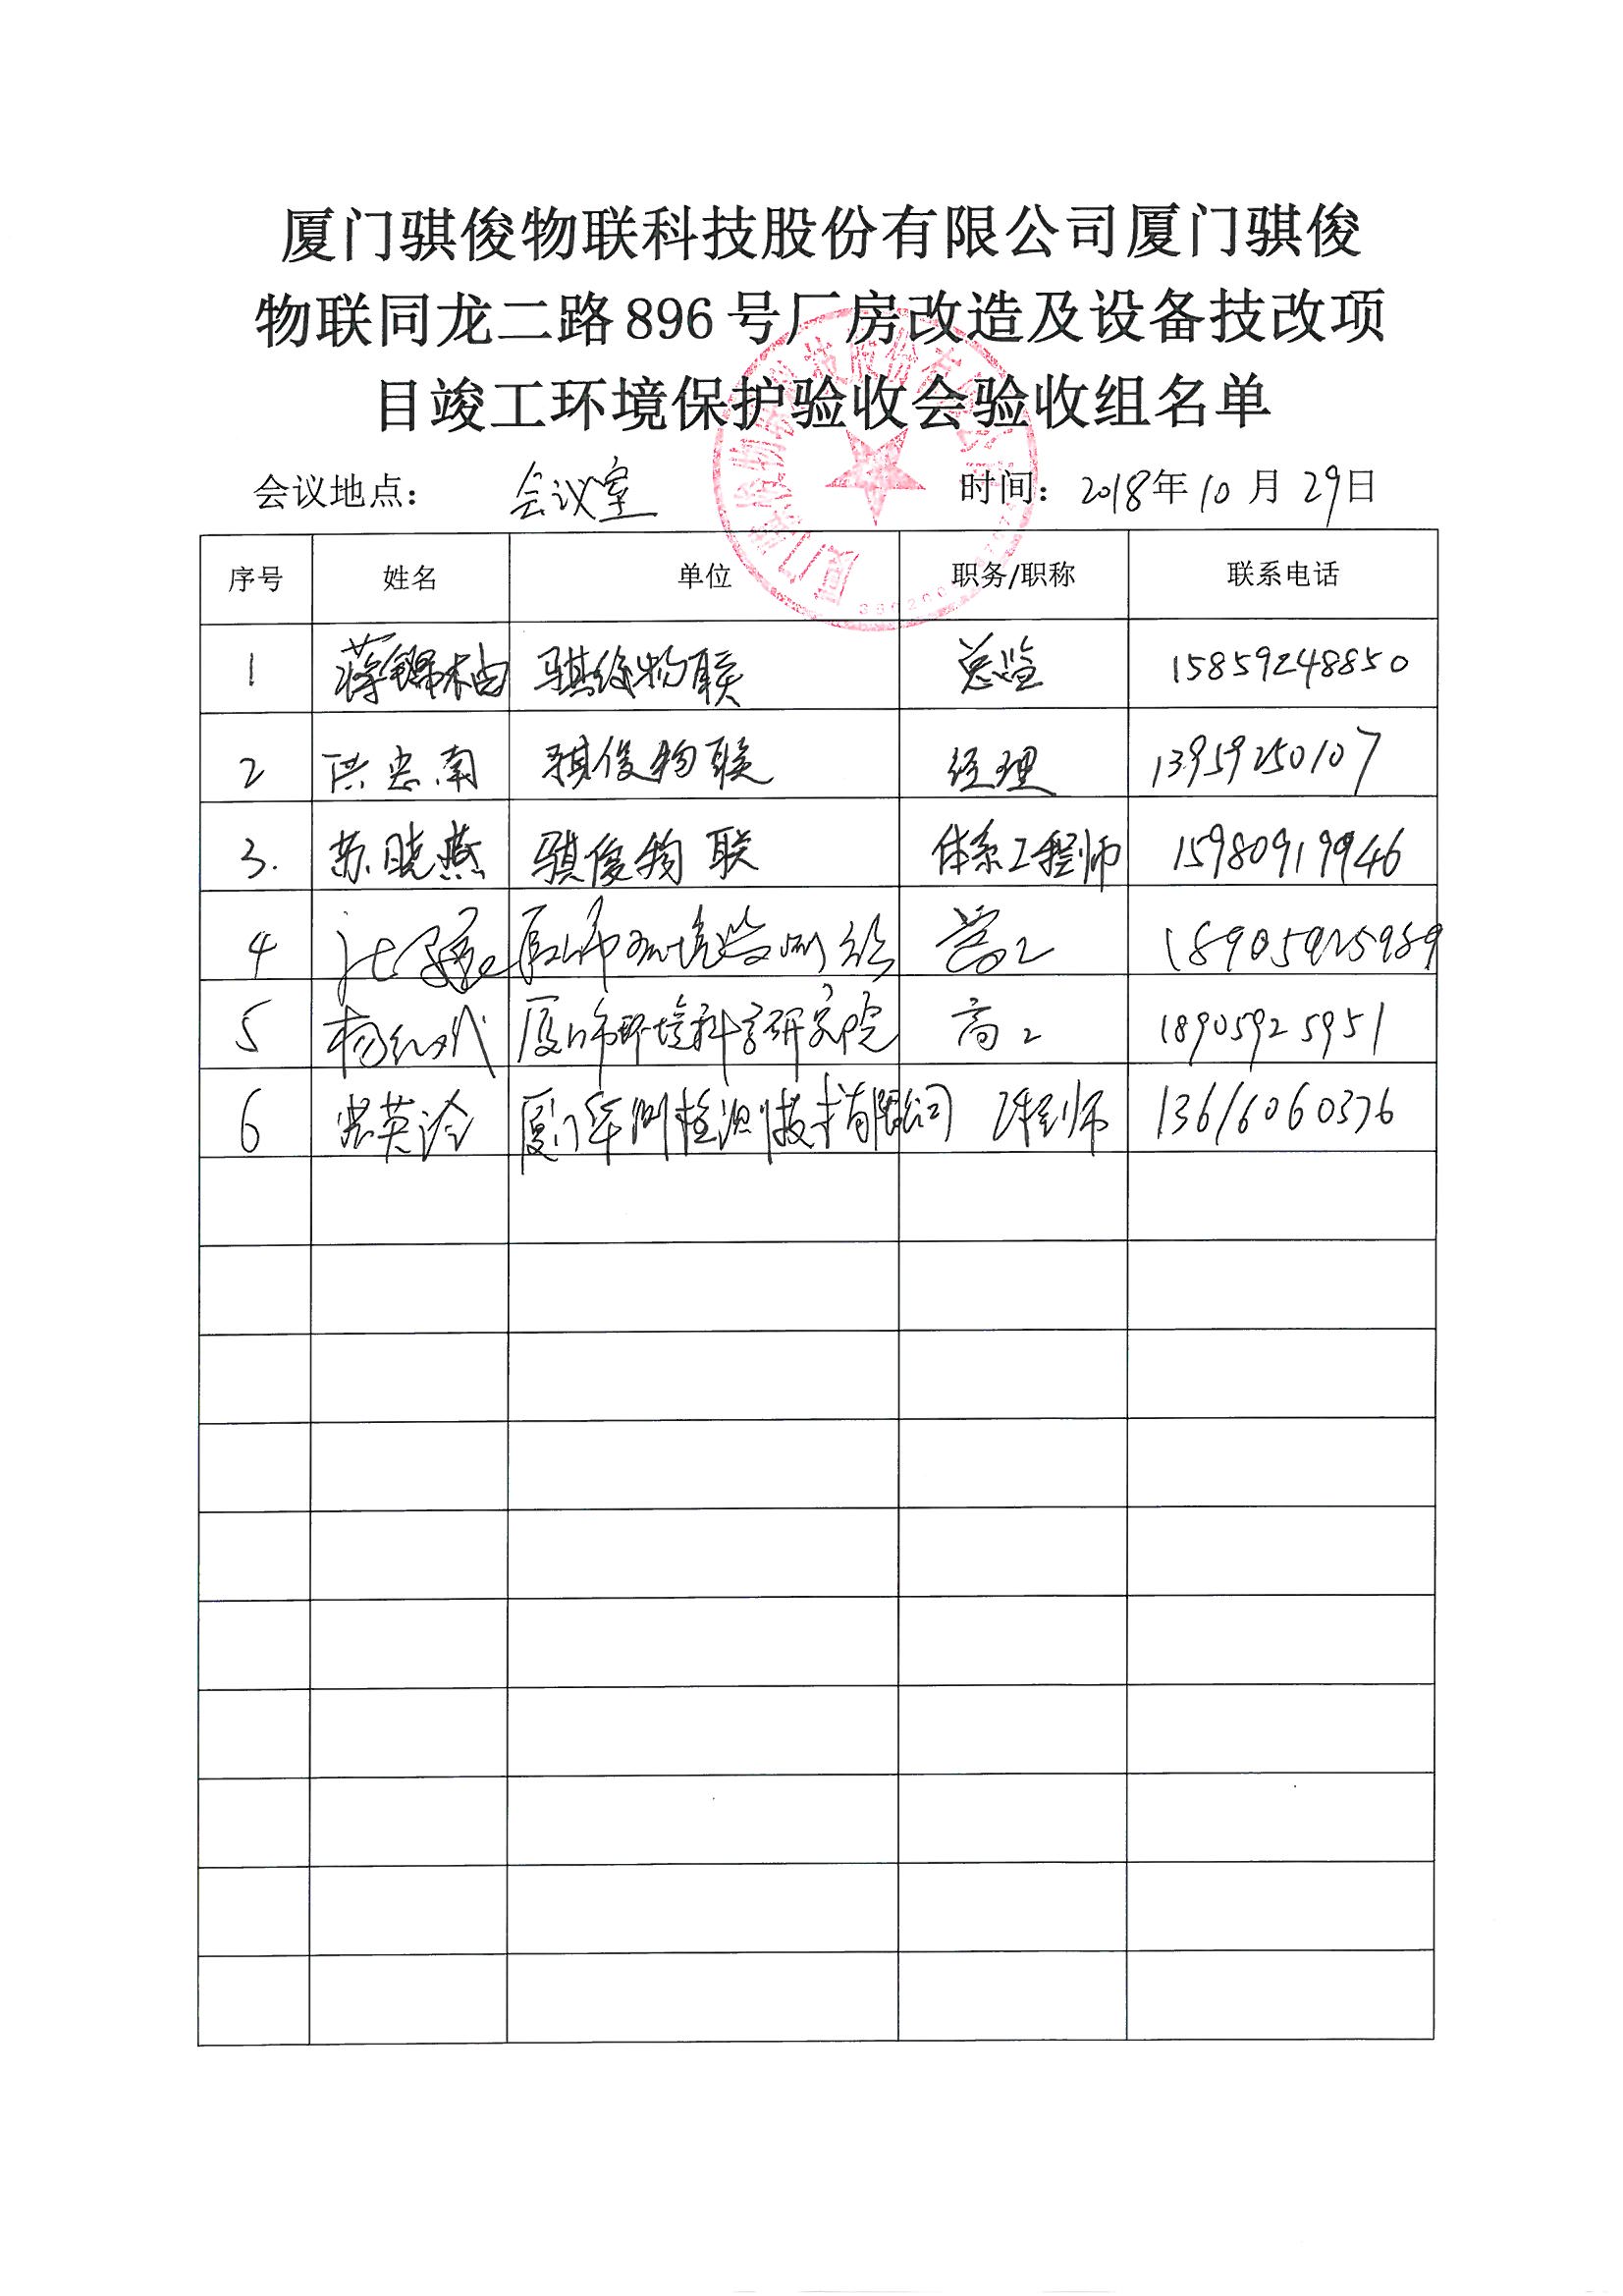 厦门骐俊物联科技股份有限公司厦门骐俊
物联同龙二路896号厂房改造及设备技改项
目竣工环境保护验收会验收组名单
会议地点： 会议室 时间：2018年10月29日
序号 姓名 单位 职务/职称 联系电话
1 蒋锦柚 骐俊物联 总监 15859248850
2 洪忠南 骐俊物联 经理 13959250107
3. 苏晓燕 骐俊物联 体系工程师 15980919946
4 厦门市环境监测站 高工 18905925989
5 杨红斌 厦门市环境科学研究院 高工 18905925951
6 英泠 厦门华测检测技术有限公司 工程师 13616060376